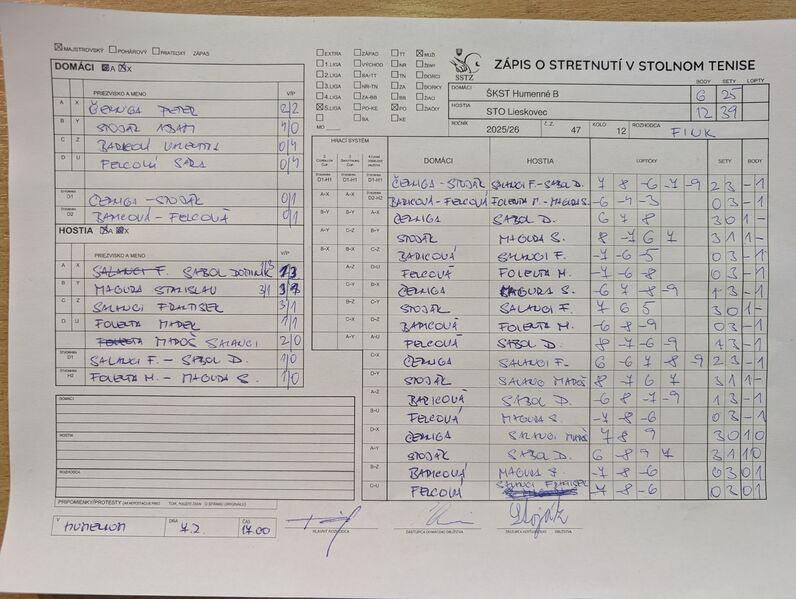 ☒ MAJSTROVSKÝ ☐ POHÁROVÝ ☐ PRIATEĽSKÝ ZÁPAS
ZÁPIS O STRETNUTÍ V STOLNOM TENISE
SSTZ
☐ EXTRA ☐ ZÁPAD ☐ TT ☒ MUŽI
☐ 1.LIGA ☐ VÝCHOD ☐ NR ☐ ŽENY
☐ 2.LIGA ☐ BA-TT ☐ TN ☐ DORCI
☐ 3.LIGA ☐ NR-TN ☐ ZA ☐ DORKY
☐ 4.LIGA ☐ ZA-BB ☐ BB ☐ ŽIACI
☒ 5.LIGA ☐ PO-KE ☒ PO ☐ ŽIAČKY
☐ BA ☐ KE
MO
BODY SETY LOPTY
DOMÁCI ŠKST Humenné B 6 25
HOSTIA STO Lieskovec 12 39
ROČNÍK 2025/26 Č.Z. 47 KOLO 12 ROZHODCA FINK
DOMÁCI A X
PRIEZVISKO A MENO V/P
A X ČERNIGA PETER 2/2
B Y STOJÁK ADAM 4/0
C Z BARICOVÁ VALENTÍNA 0/4
D U FELCOVÁ SÁRA 0/4
D1 ČERNIGA - STOJÁK 0/1
D2 BARICOVÁ - FELCOVÁ 0/1
HOSTIA A X
PRIEZVISKO A MENO V/P
A X SALANCI F. SABOL DOMINIK 1/3
B Y MAGURA STANISLAV 3/1
C Z SALANCI FRANTIŠEK 3/1
D U FOLENTA MAREK 1/1
MADOŠ SALANCI 2/0
D1 SALANCI F. - SABOL D. 1/0
H2 FOLENTA M. - MAGURA S. 1/0
HRACÍ SYSTÉM DOMÁCI HOSTIA LOPTIČKY SETY BODY
D1-H1 D1-H1 D1-H1 ČERNIGA - STOJÁK SALANCI F. - SABOL D. 7 8 -6 -7 -9 2 3 - 1
A-X A-X D2-H2 BARICOVÁ - FELCOVÁ FOLENTA M. - MAGURA S. -6 -9 -3 0 3 - 1
B-Y B-Y A-X ČERNIGA SABOL D. 6 7 8 3 0 1 -
A-Y C-Z B-Y STOJÁK MAGURA S. 8 -7 6 7 3 1 1 -
B-X B-X C-Z BARICOVÁ SALANCI F. -7 -6 -5 0 3 - 1
A-Z D-U FELCOVÁ FOLENTA M. -7 -6 -8 0 3 - 1
C-Y B-X ČERNIGA MAGURA S. -6 7 -8 -9 1 3 - 1
B-Z C-Y STOJÁK SALANCI F. 7 6 5 3 0 1 -
C-X D-Z BARICOVÁ FOLENTA M. -6 -8 -9 0 3 - 1
A-Y A-U FELCOVÁ SABOL D. 8 -7 -6 -9 1 3 - 1
C-X ČERNIGA SALANCI F. 6 -6 7 -8 -9 2 3 - 1
D-Y STOJÁK SALANCI MADOŠ 8 -7 6 7 3 1 1 -
A-Z BARICOVÁ SABOL D. -6 8 -7 -9 1 3 - 1
B-U FELCOVÁ MAGURA S. -7 -8 -6 0 3 - 1
D-X ČERNIGA SALANCI MADOŠ 7 8 9 3 0 1 0
A-Y STOJÁK SABOL D. 6 -8 9 7 3 1 1 0
B-Z BARICOVÁ MAGURA S. -7 -8 -6 0 3 0 1
C-U FELCOVÁ SALANCI FRANTIŠEK -7 -8 -6 0 3 0 1
DOMÁCI
HOSTIA
ROZHODCA
PRIPOMIENKY/PROTESTY
V HUMENNOM DŇA 7.2. ČAS 17.00
HLAVNÝ ROZHODCA ZÁSTUPCA DOMÁCEHO DRUŽSTVA ZÁSTUPCA HOSŤUJÚCEHO DRUŽSTVA